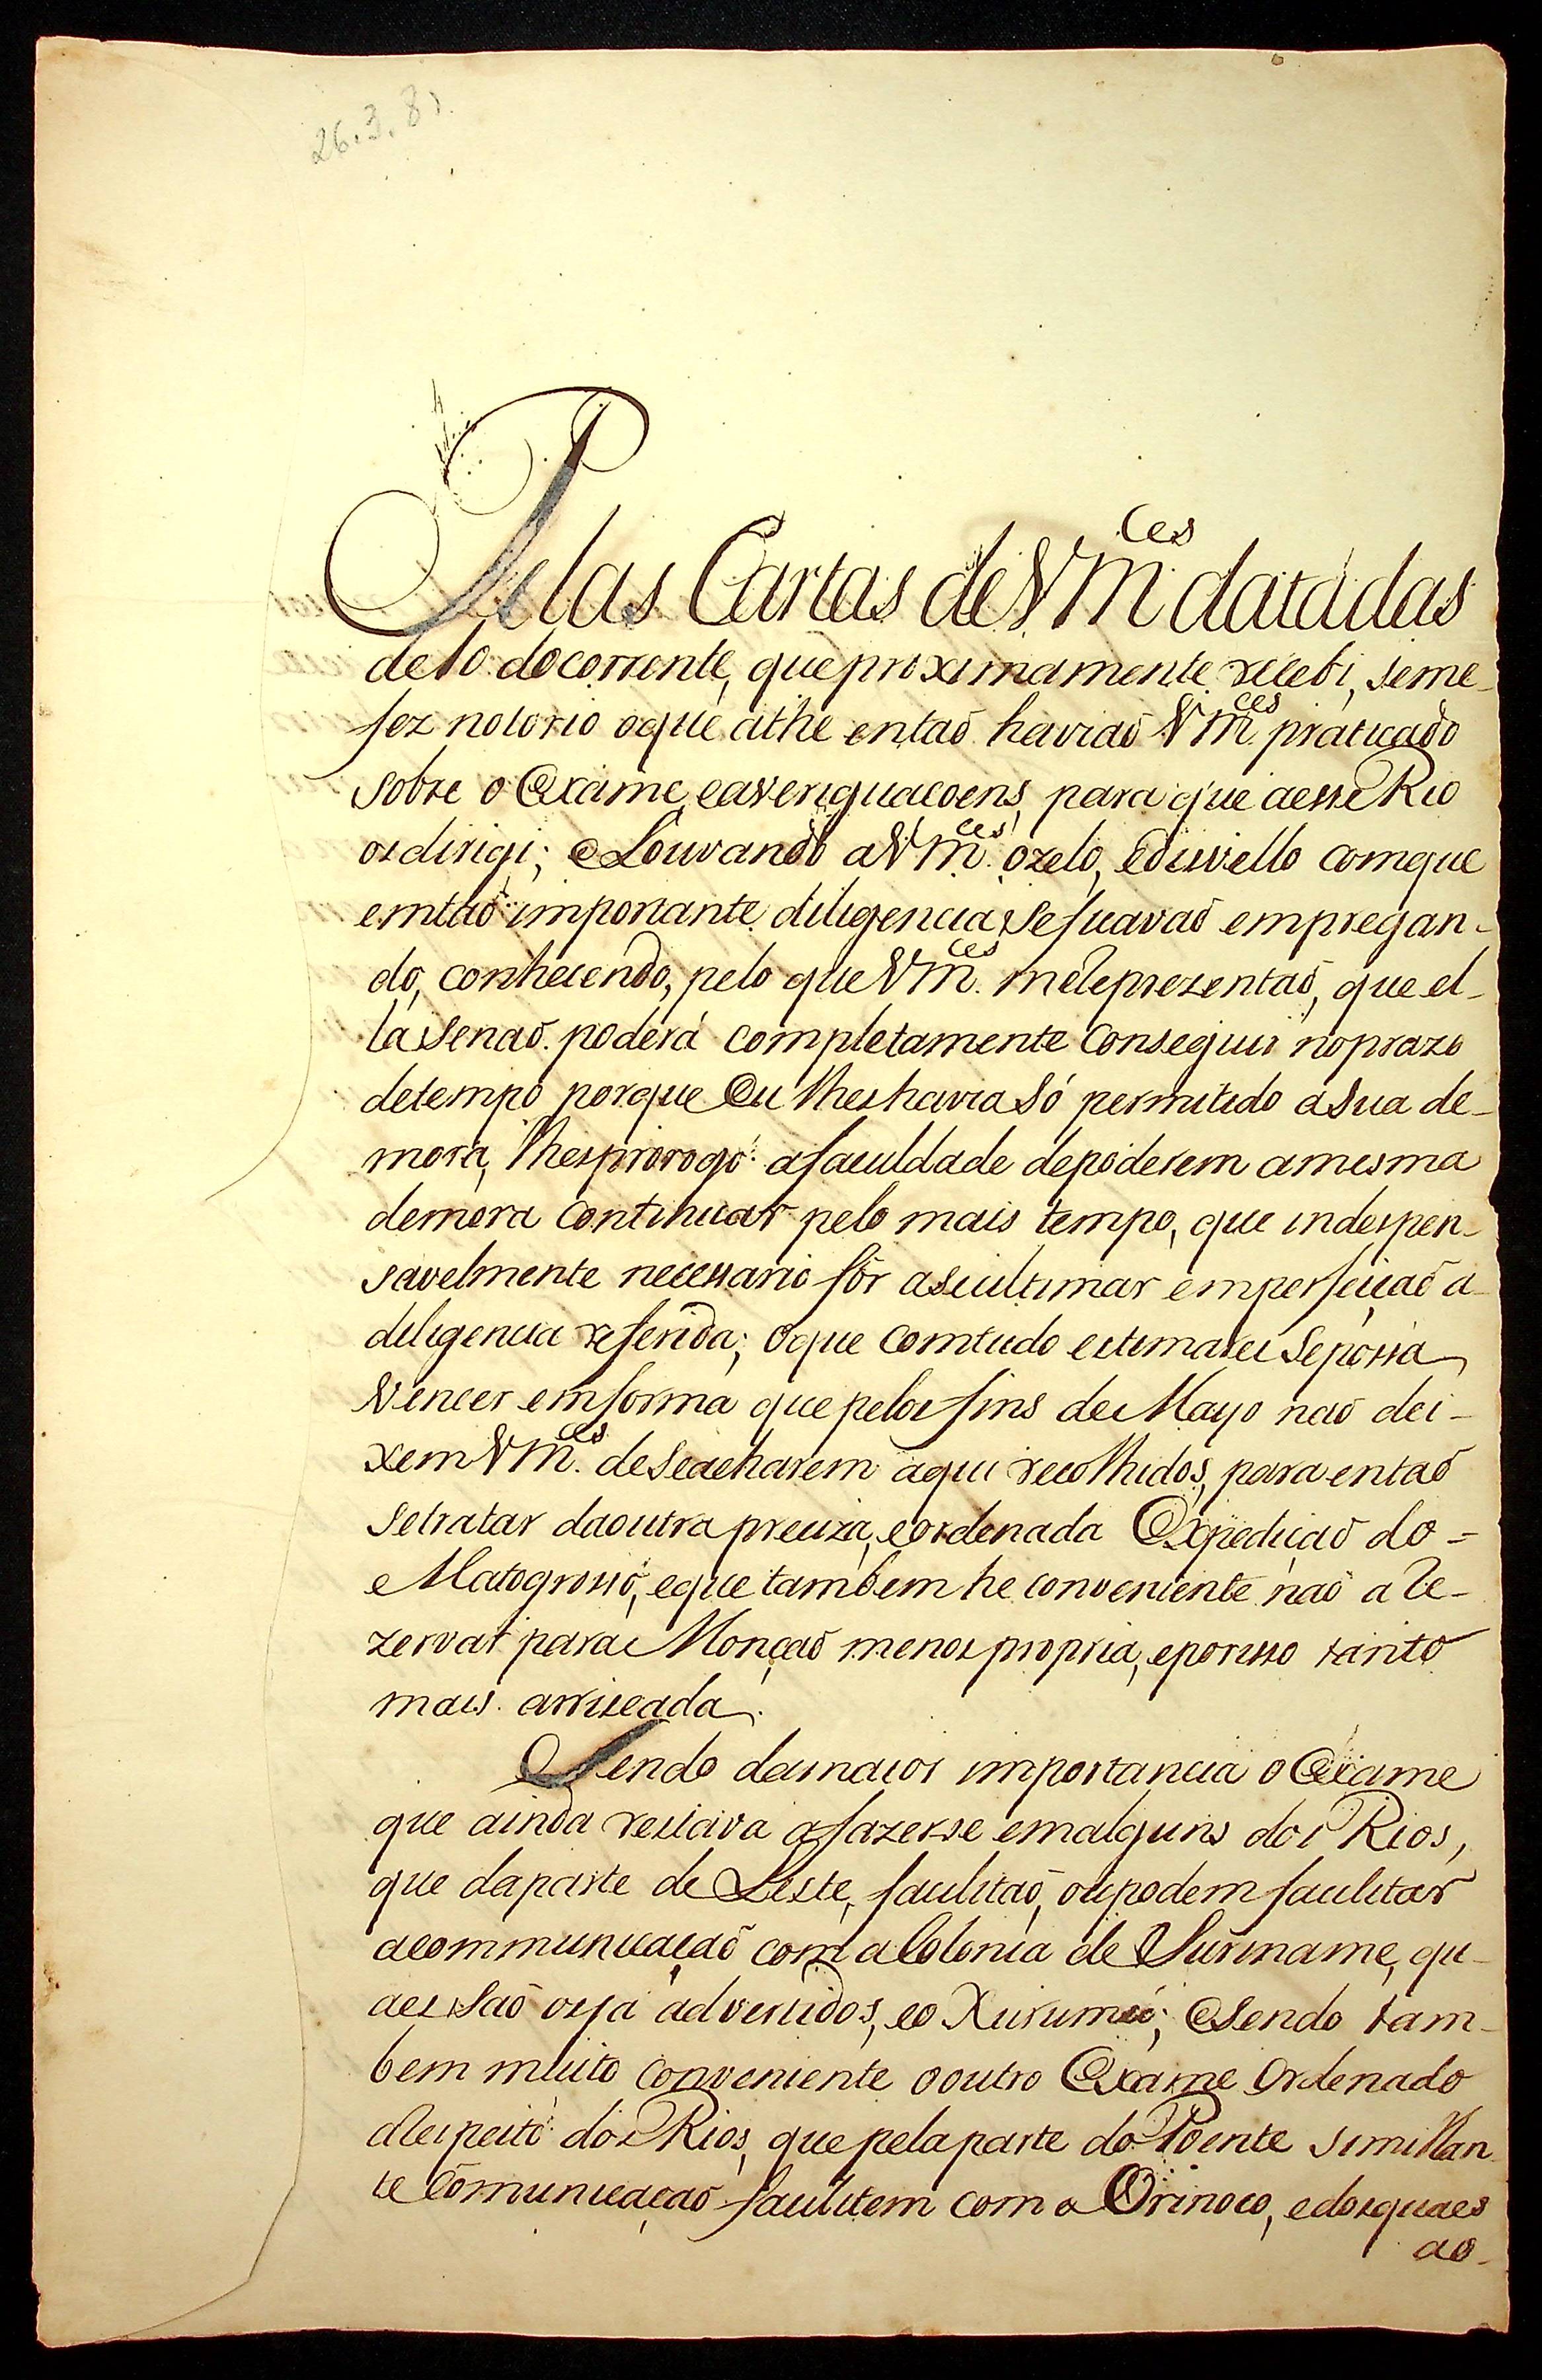 26.3.8
Pelas Cartas de VM.ces datadas
de 10 do corrente, que proximamente recebi, se me
fez notorio o que athe entaõ haviaõ VM.ces praticado
sobre o Exame, e averiguacoens, para que a esse Rio
os dirigi; e Louvando a VM.ces o zelo, e disvello com que
em taõ importante diligencia, se ficavaõ empregan-
do, conhecendo, pelo que VM.ces me Reprezentaõ, que el-
la Se naõ poderá completamente conseguir no prazo
de tempo porque Eu lhes havia Só permitido a Sua de-
mora, lhes prorogo a faculdade de poderem a mesma
demora continuar pelo mais tempo, que indespen-
savelmente necessario fôr a Se ultimar em perfeiçaõ a
diligencia referida; o que comtudo estimarei Se possa
Vencer em forma que pelos fins de Mayo naõ dei-
xem VM.ces de Se acharem aqui recolhidos, para entaõ
Se tratar da outra preciza, e ordenada Expediçaõ do =
Matogrosso, e que tambem he conveniente naõ a Re-
zervar para Monçaõ menos propria, e por isso tanto
mais arriscada.
Sendo da maior importancia o Exame
que ainda restava a fazerse em alguns dos Rios,
que da parte de Leste, facilitaõ, ou podem facilitar
a communicaçaõ com a Colonia de Suriname, qu-
aes Saõ os já advertidos, e o Xurumú; E sendo tam-
bem muito conveniente o outro Exame Ordenado
a Respeito dos Rios, que pela parte do Poente similhan
te Cõmunicaçaõ facilitem com o Orinoco, e dos quaes
ao-